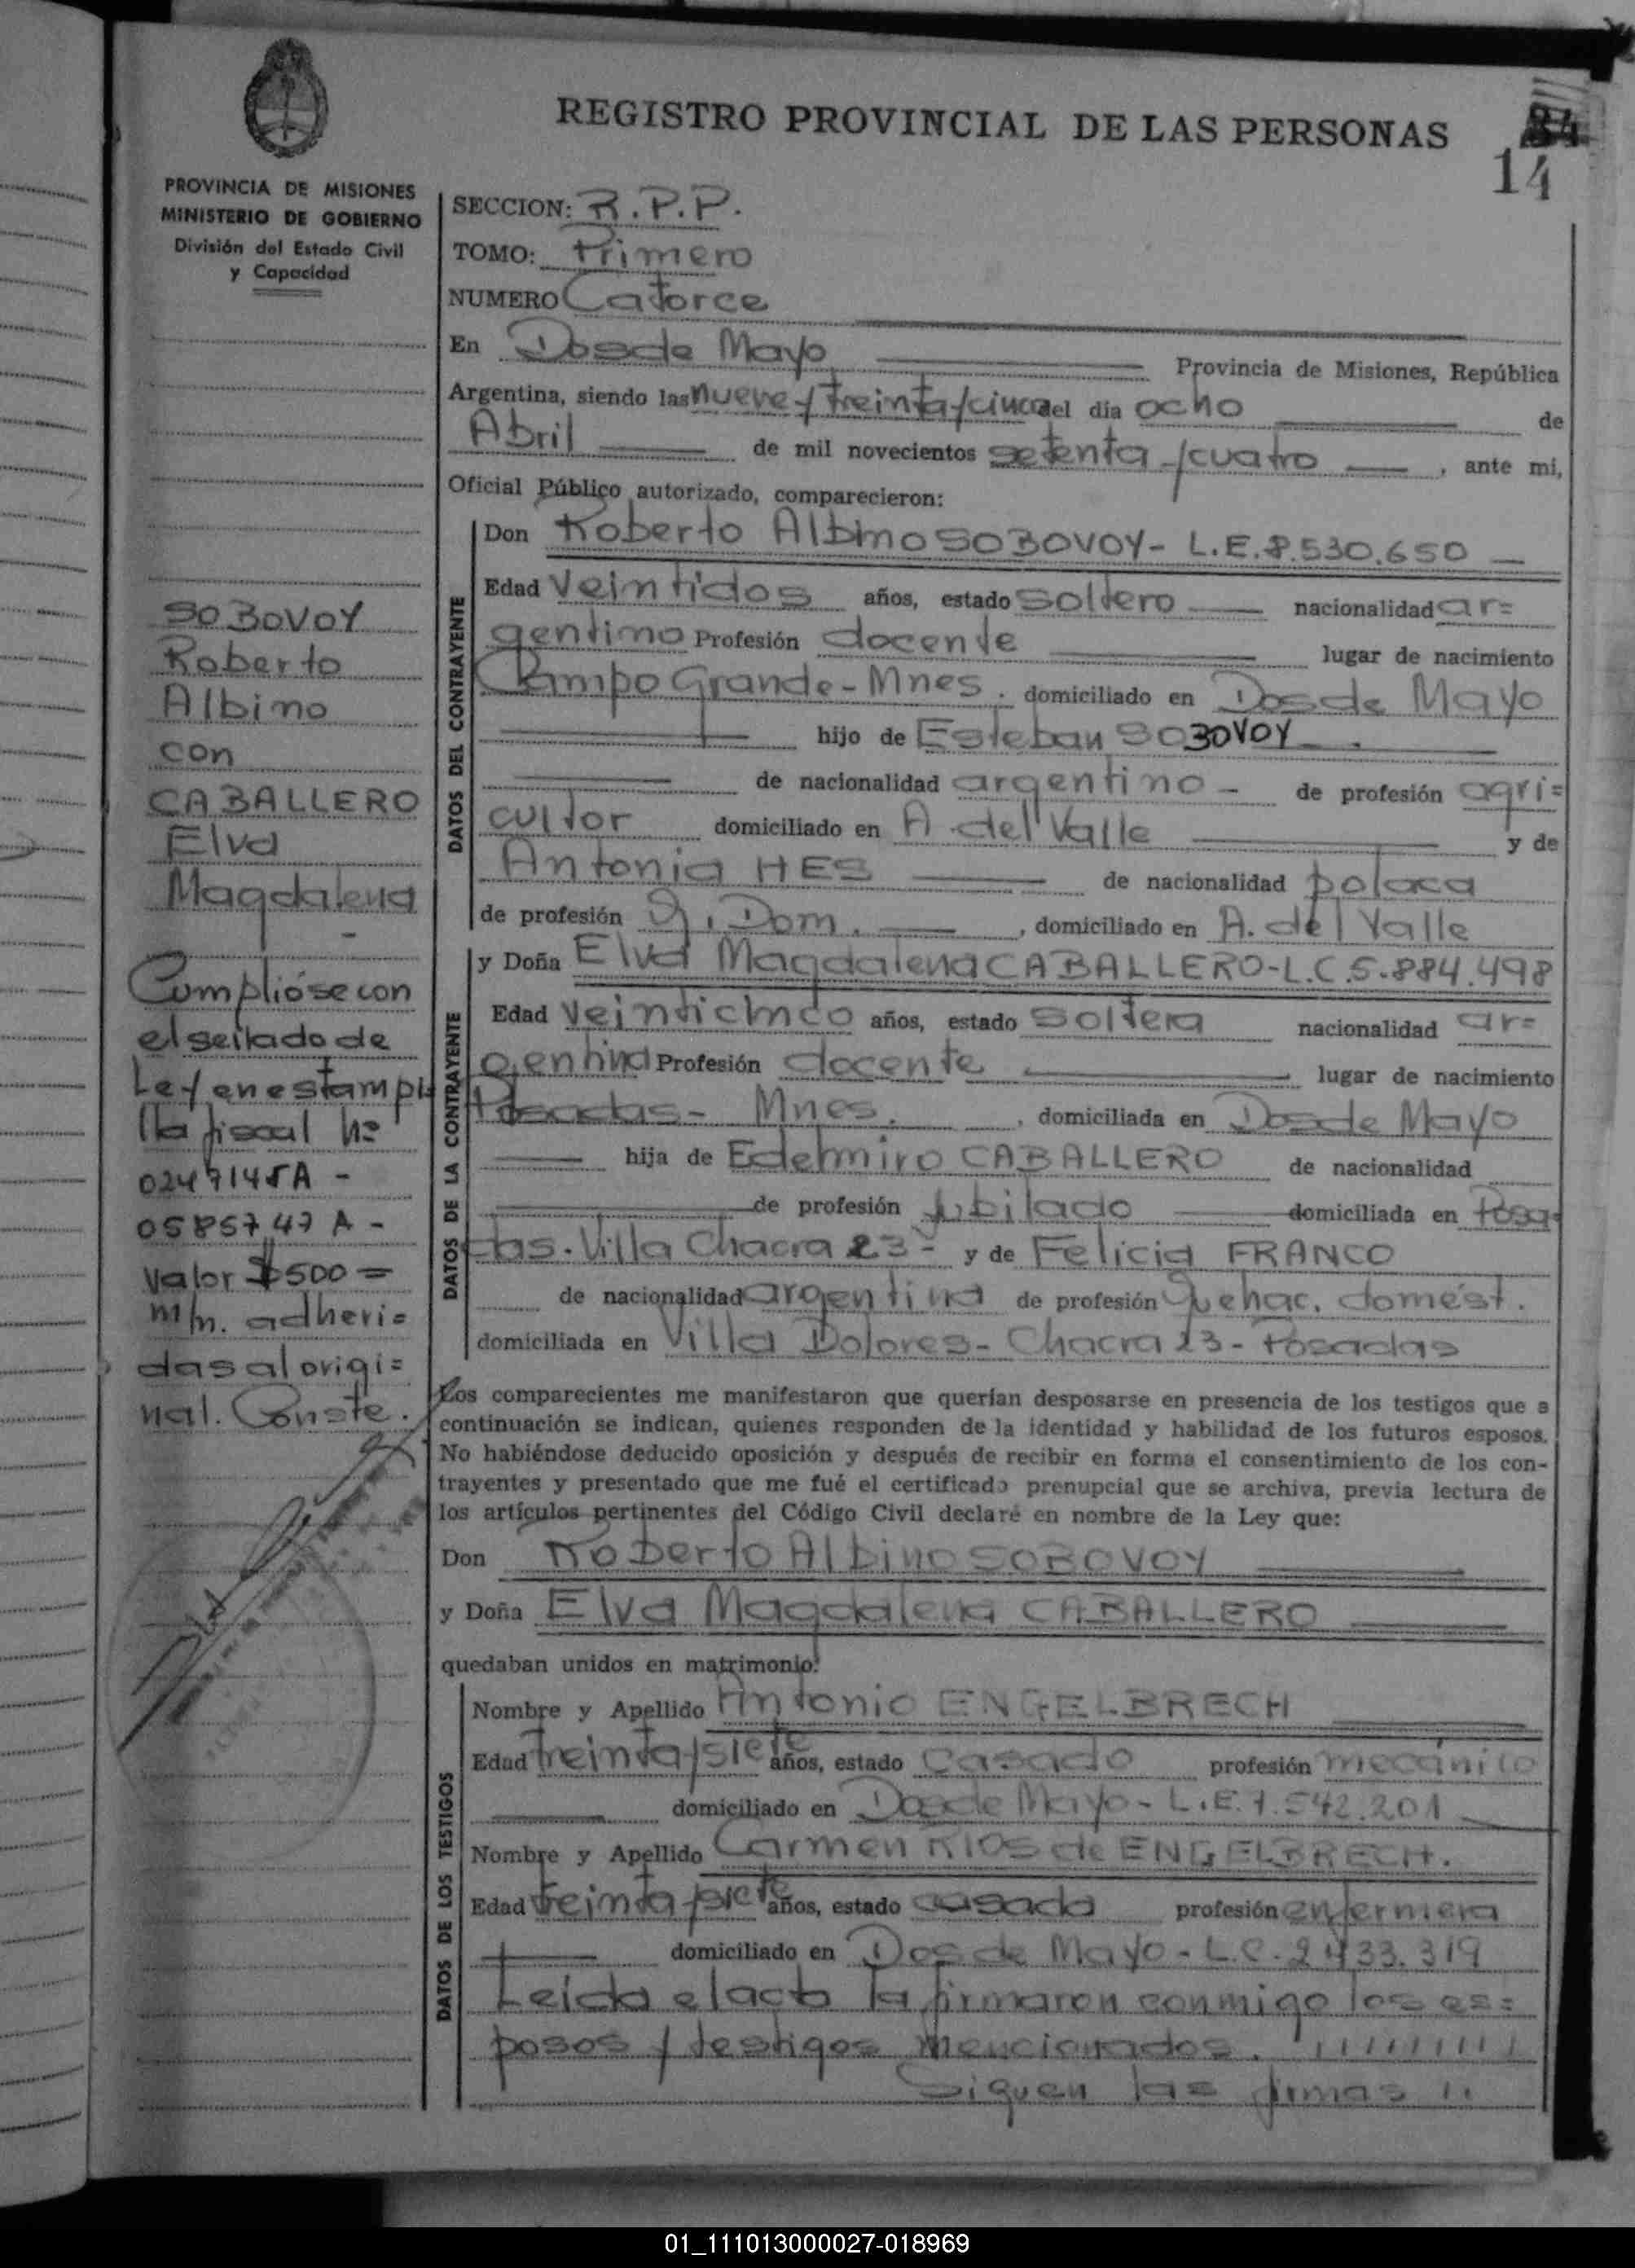 REGISTRO PROVINCIAL DE LAS PERSONAS
14
PROVINCIA DE MISIONES
MINISTERIO DE GOBIERNO
División del Estado Civil
y Capacidad
SOBOVOY
Roberto
Albino
con
CABALLERO
Elva
Magdalena
-
Cumplióse con
el sellado de
Ley en estampi
lla fiscal Nº
02471451A -
0585747 A -
Valor $500=
m/n. adheri=
das al origi=
nal. Conste.
SECCION: R.P.P.
TOMO: Primero
NUMERO Catorce
En Dos de Mayo Provincia de Misiones, República
Argentina, siendo las nueve y treinta y cinco del día ocho de
Abril de mil novecientos setenta y cuatro, ante mí,
Oficial Público autorizado, comparecieron:
DATOS DEL CONTRAYENTE
Don Roberto Albino SOBOVOY - L.E. 8.530.650
Edad Veintidos años, estado soltero nacionalidad ar=
gentino Profesión docente lugar de nacimiento
Campo Grande - Mnes. domiciliado en Dos de Mayo
hijo de Esteban SOBOVOY
de nacionalidad argentino - de profesión agri=
cultor domiciliado en A. del Valle y de
Antonia HES de nacionalidad polaca
de profesión Q. Dom., domiciliado en A. del Valle
DATOS DE LA CONTRAYENTE
y Doña Elva Magdalena CABALLERO - L.C. 5.884.498
Edad Veinticinco años, estado soltera nacionalidad ar=
gentina Profesión docente lugar de nacimiento
Posadas - Mnes., domiciliada en Dos de Mayo
hija de Edelmiro CABALLERO de nacionalidad
de profesión jubilado domiciliada en Posa-
das. Villa Chacra 23 - y de Felicia FRANCO
de nacionalidad argentina de profesión Quehac. domést.
domiciliada en Villa Dolores - Chacra 23 - Posadas
Los comparecientes me manifestaron que querían desposarse en presencia de los testigos que a
continuación se indican, quienes responden de la identidad y habilidad de los futuros esposos.
No habiéndose deducido oposición y después de recibir en forma el consentimiento de los con-
trayentes y presentado que me fué el certificado prenupcial que se archiva, previa lectura de
los artículos pertinentes del Código Civil declaré en nombre de la Ley que:
Don Roberto Albino SOBOVOY
y Doña Elva Magdalena CABALLERO
quedaban unidos en matrimonio:
DATOS DE LOS TESTIGOS
Nombre y Apellido Antonio ENGELBRECH
Edad treinta y siete años, estado casado profesión mecánico
domiciliado en Dos de Mayo - L.E. 7.542.201
Nombre y Apellido Carmen RIOS de ENGELBRECH.
Edad treinta y siete años, estado casada profesión enfermera
domiciliado en Dos de Mayo - L.C. 2.433.319
Leida el acta la firmaron conmigo los es=
posos y testigos mencionados.
Siguen las firmas
01_111013000027-018969